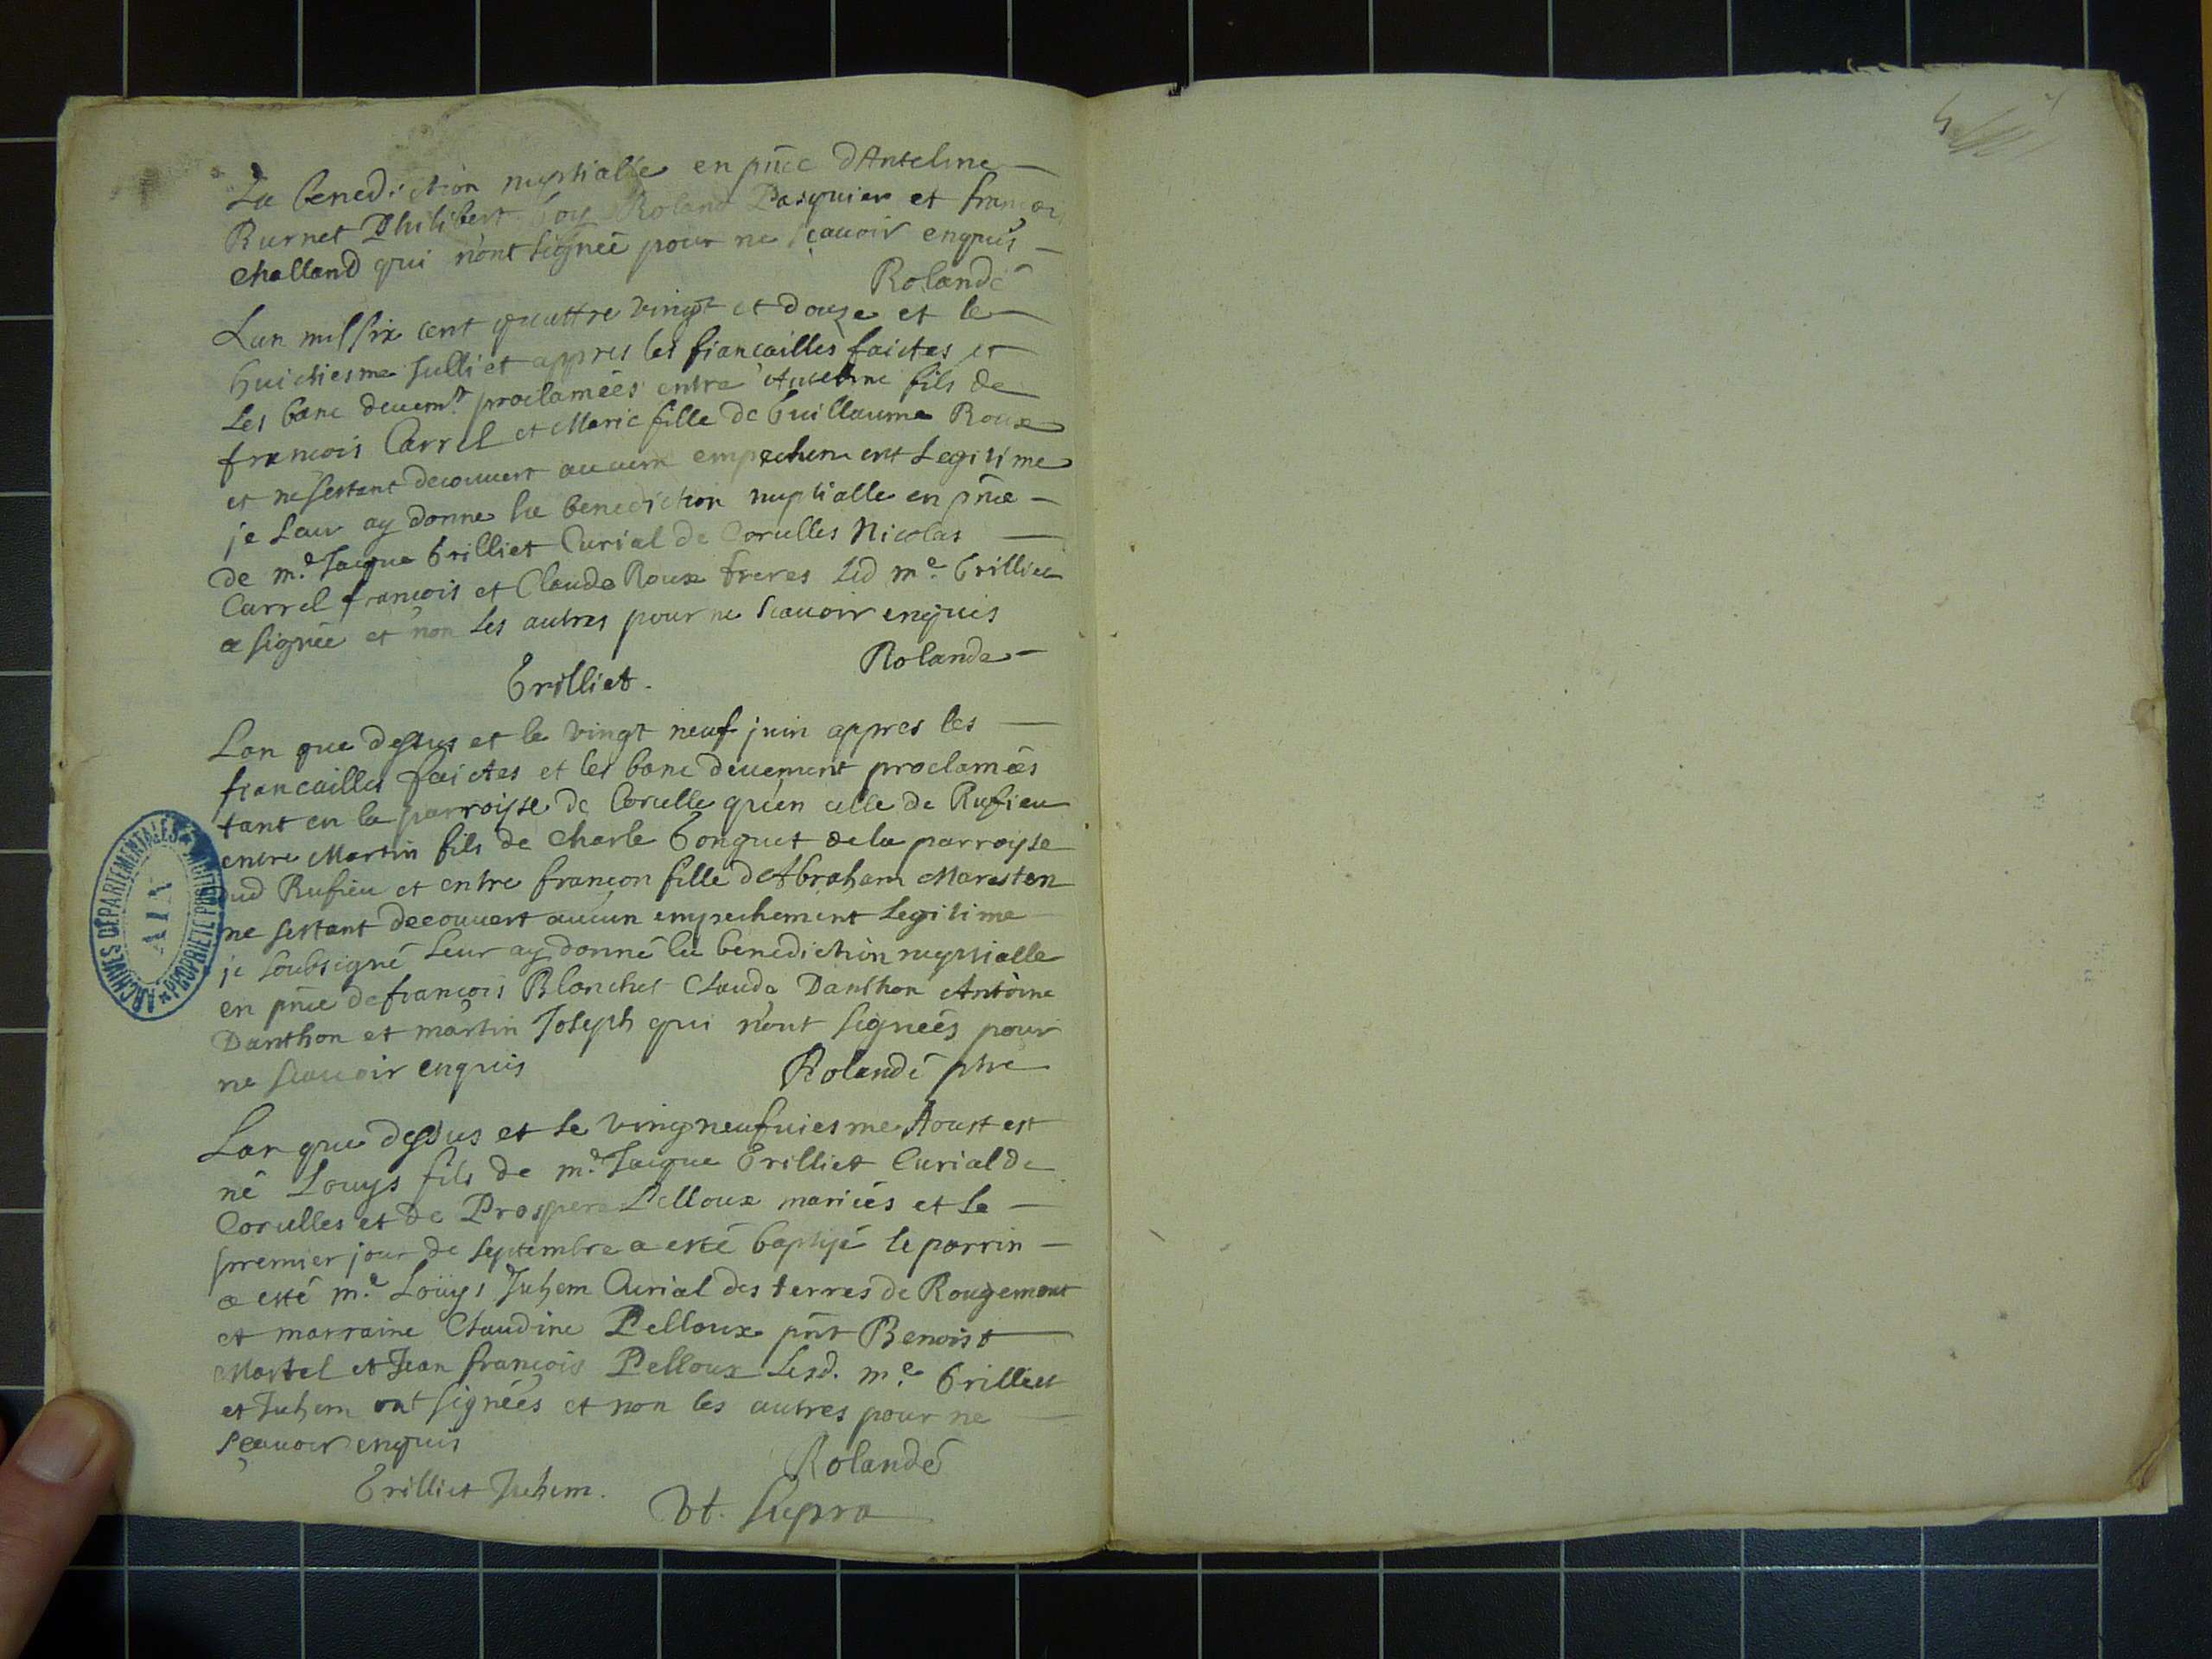 La benediction nuptialle en pñce dAntelme
Burnet Philibert Goy Roland Pasquier et françois
Challand qui n'ont signée pour ne sçauoir enquis
Rolandé
Lan mil six cent quattre vingt et douze et le
huictiesme Julliet appres les fiancailles faictes et
les banc deuemt. proclamées entre Antelme fils de
francois Carrel et Marie fille de Guillaume Roux
et ne sestant decouuert aucun empechement Legitime
je Leur ay donne la benediction nuptialle en pñce
de me. Jaque Trilliet Curial de Corcelles Nicolas
Carrel francois et Claude Roux freres Led me. Trilliet
a signée et non les autres pour ne scauoir enquis
Rolande
Trilliet.
Lan que dessus et le vingt neuf juin appres les
fiancailles faictes et les banc deuement proclamées
tant en la parroisse de Corcelle quèn celle de Rufieu
entre Martin fils de Charle Gonguet de la parroisse
dud Rufieu et entre françon fille dAbraham Maresten
ne sestant decouuert aucun empechement Legitime
je soubsigné Leur ay donné la benediction nuptialle
en pñce de françois Blanchet Claude Danthon Antoine
Danthon et martin Joseph qui n'ont signées pour
ne scauoir enquis
Rolandé ptre
Lan que dessus et le vingneufuiesme Aoust est
né Louys fils de me. Jaque Trilliet Curial de
Corcelles et de Prospere Pelloux mariés et le
premier jour de septembre a esté baptisé le parrin
a esté me. Loüys Juhem Curial des terres de Rougemont
et marraine Claudine Pelloux pñt Benoist
Martel et Jean françois Pelloux Lesd. me. Trilliet
et Juhem ont signées et non les autres pour ne
sçauoir enquis
Rolandé
Trilliet Juhem.
Vt. Supra
ARCHIVES DÉPARTEMENTALES
AIN
PROPRIÉTÉ PUBLIQUE